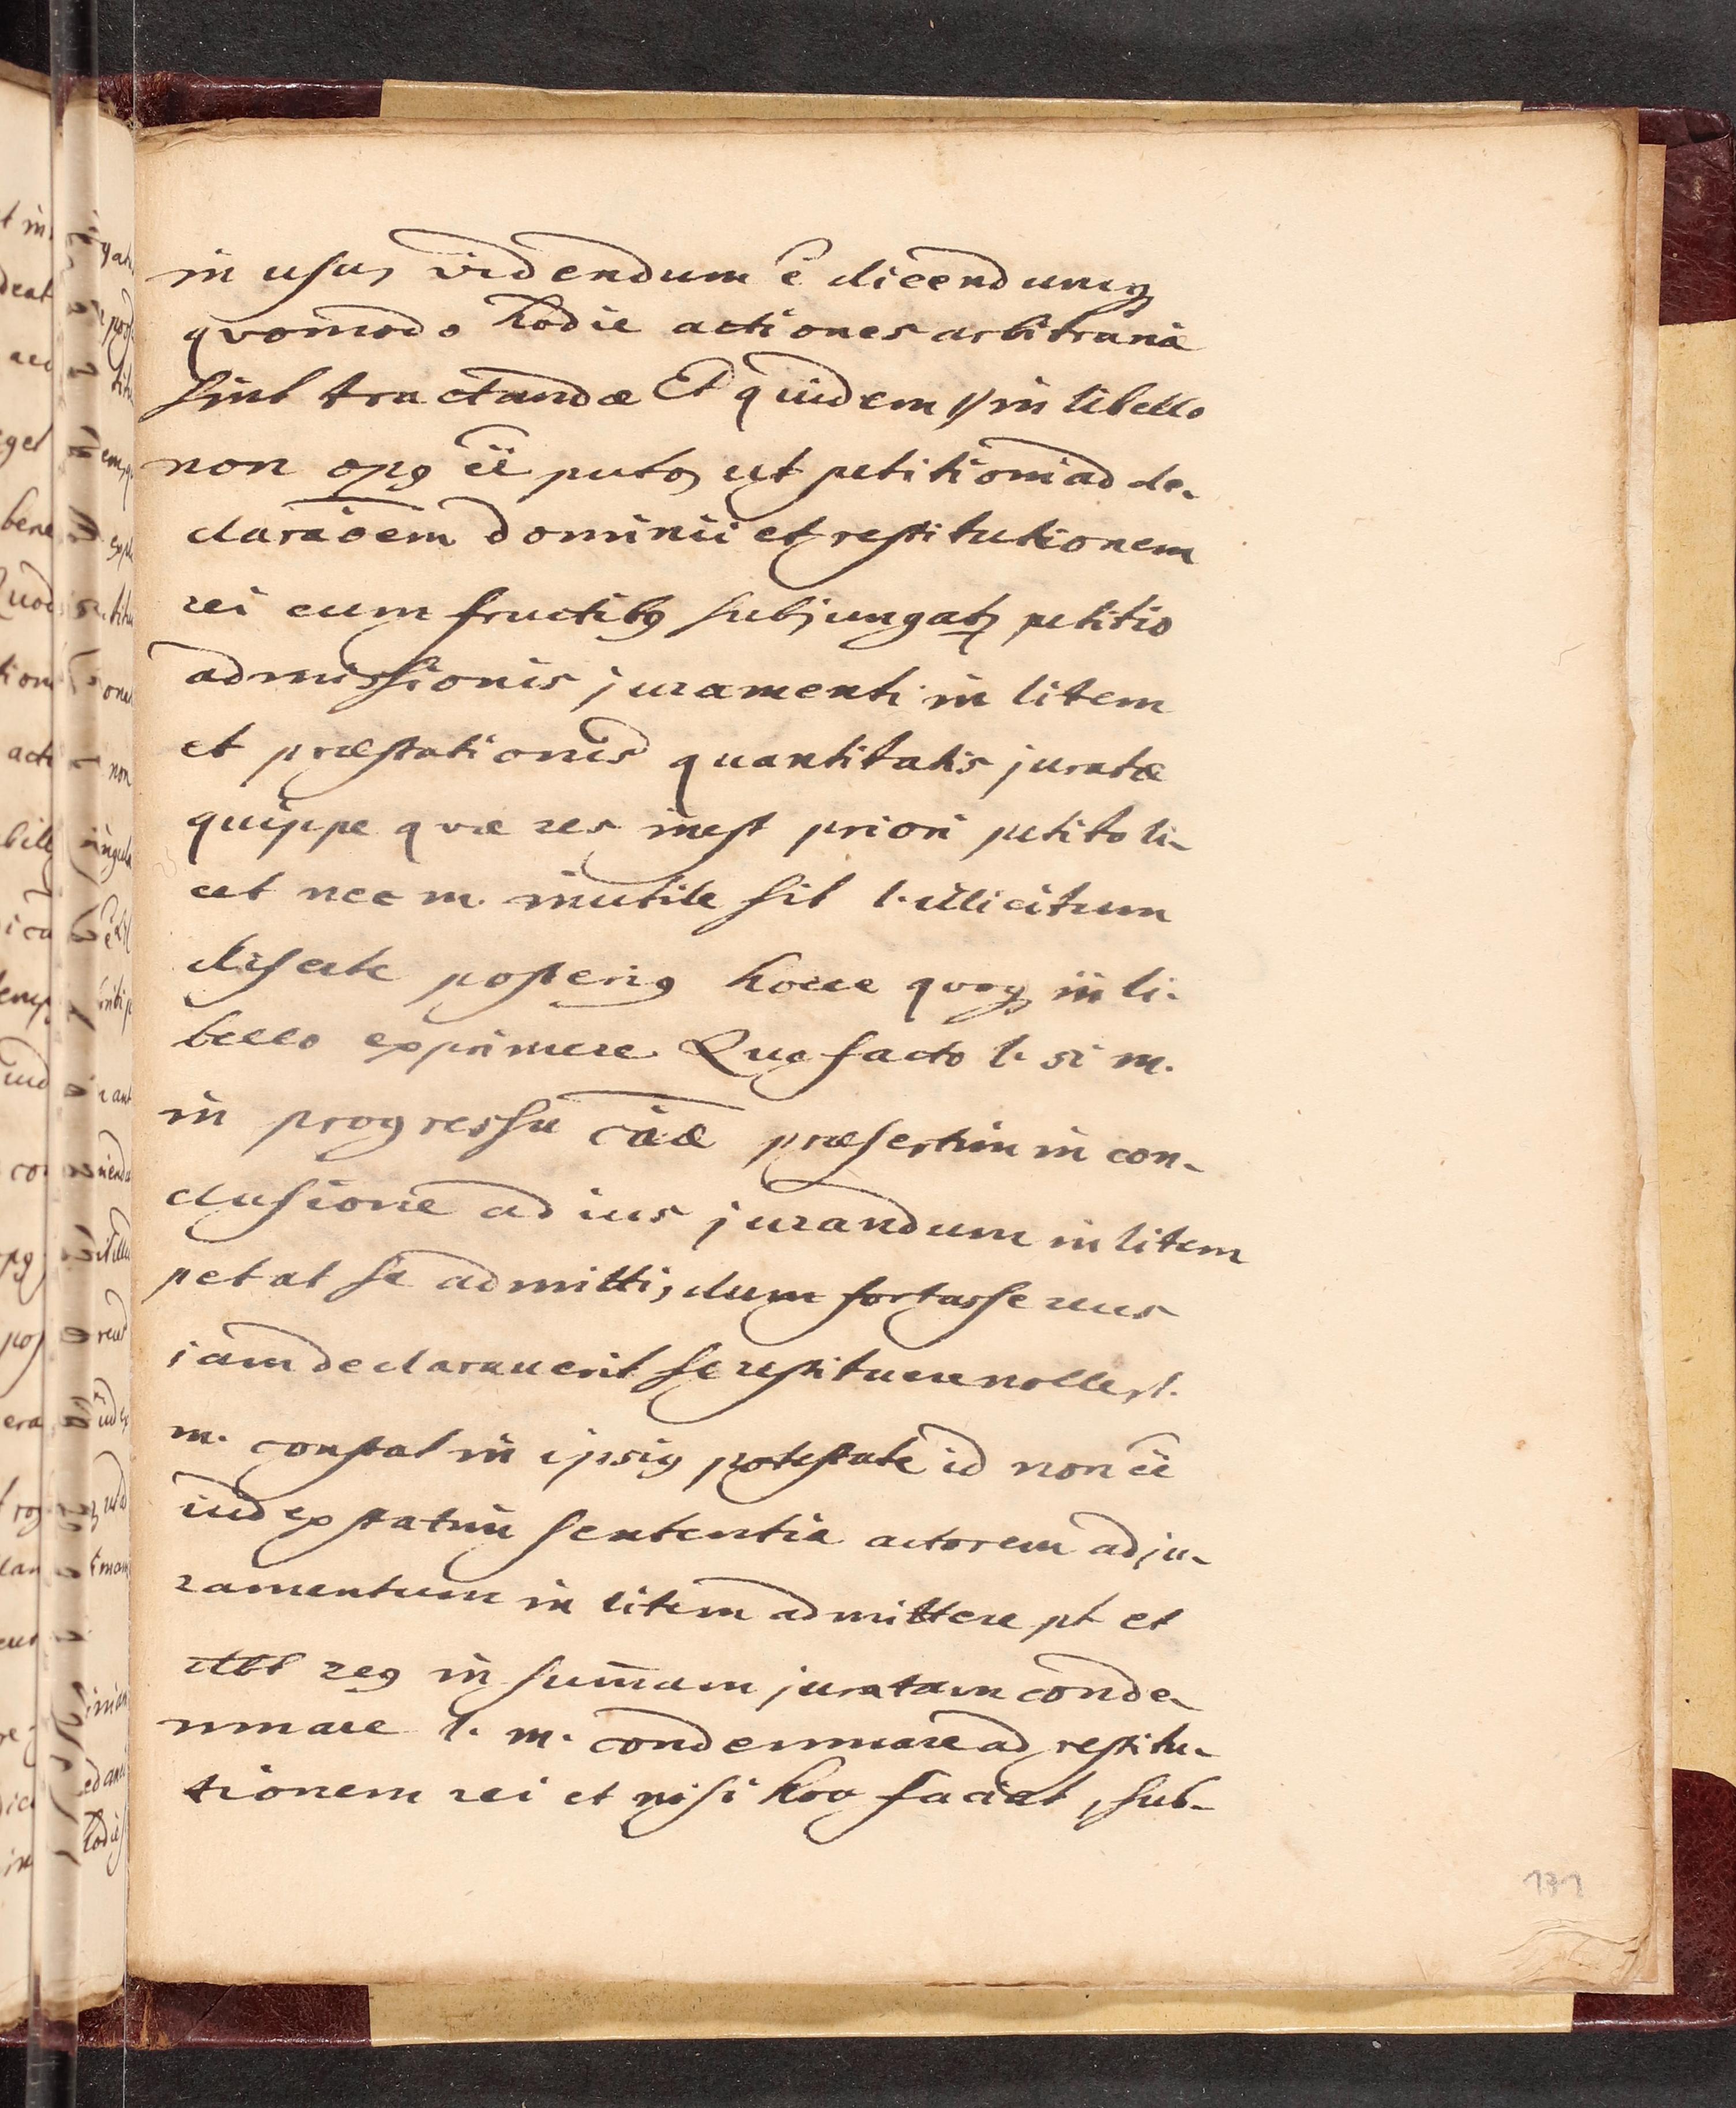 in usu, videndum ē dicendumq
quomodo hodie actiones arbitrariæ
sint tractandæ Et quidem 1/ in libello
non opꝰ ēē puto, ut petitioni ad de-
claraōem dominii et restitutionem
rei cum fructibꝰ subjungatʒ petitio
admissionis juramenti in litem
et præstationis quantitatis juratæ
quippe quæ res inest priori petito li-
cet nec m. inutile sit l. illicitum
diserte posteriꝰ hocce quoqʒ in li-
bello exprimere Quo facto l. si m.
in progressu cāæ præsertim in con-
clusione ad ius jurandum in litem
petat se admitti, dum fortasse reus
jam declarauerit se restituere nolle, l.
m. constat in ipsiꝰ potestate id non ēē
iudex statim sententia actorem ad ju-
ramentum in litem admittere pt et
reꝰ in sum̄am juratam conde-
mnare l. m. condemnare ad restitu-
tionem rei et nisi hoc faciat, sub-
131